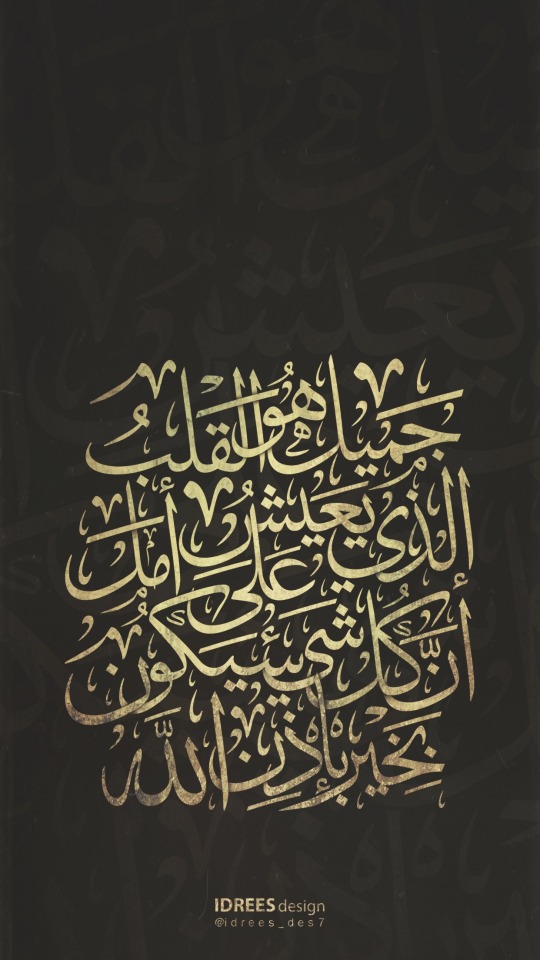 جَميل هو القلبُ
الذي يَعيشُ على أمل
أنَّ كُل شيء سَيَكونُ
بِخَيرٍ بإذنِ اللَّه
IDREES design
@idrees_des7